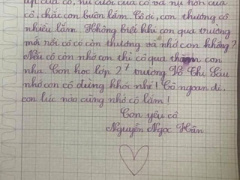 của cô, nụ cười của cô và nụ hôn của
cô, chắc con buồn lắm. Cô ơi, con thương cô
nhiều lắm. Không biết khi con qua trường
mới rồi cô có còn thương và nhớ con không?
Nếu cô còn nhớ con thì cô qua thăm con
nha. Con học lớp 2 trường Võ Thị Sáu
nhớ con cô đừng khóc nhé! Cô ngoan đi.
con lúc nào cũng nhớ cô lắm!
Con yêu cô
Nguyễn Ngọc Hân